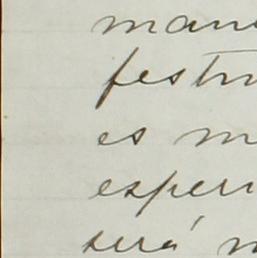 mano
festi
es m
esperi
será n